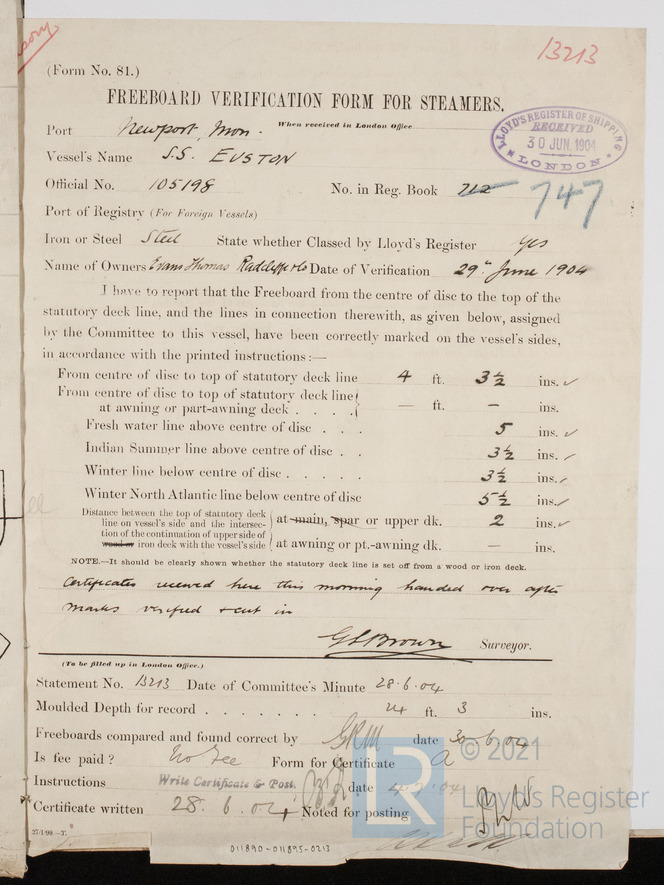 13213
(Form No. 81.)
FREEBOARD VERIFICATION FORM FOR STEAMERS.
When received in London Office
LLOYD'S REGISTER OF SHIPPING
RECEIVED
30 JUN. 1904
LONDON
Port Newport, Mon.
Vessel's Name S.S. EUSTON
Official No. 105198 No. in Reg. Book 712 747
Port of Registry (For Foreign Vessels)
Iron or Steel Steel State whether Classed by Lloyd's Register Yes
Name of Owners Evans Thomas Radcliffe & Co Date of Verification 29th June 1904
I have to report that the Freeboard from the centre of disc to the top of the
statutory deck line, and the lines in connection therewith, as given below, assigned
by the Committee to this vessel, have been correctly marked on the vessel's sides,
in accordance with the printed instructions:—
From centre of disc to top of statutory deck line 4 ft. 3½ ins. ✓
From centre of disc to top of statutory deck line
at awning or part-awning deck . . . . — ft. – ins.
Fresh water line above centre of disc . . . 5 ins. ✓
Indian Summer line above centre of disc . . 3½ ins. ✓
Winter line below centre of disc . . . . . 3½ ins. ✓
Winter North Atlantic line below centre of disc 5½ ins. ✓
Distance between the top of statutory deck
line on vessel's side and the intersec-
tion of the continuation of upper side of
wood or iron deck with the vessel's side
at main, spar or upper dk. 2 ins. ✓
at awning or pt.-awning dk. — ins.
NOTE.—It should be clearly shown whether the statutory deck line is set off from a wood or iron deck.
Certificates received here this morning handed over after
marks verified & cut in
G S Brown Surveyor.
(To be filled up in London Office.)
Statement No. 13213 Date of Committee's Minute 28.6.04
Moulded Depth for record . . . . . . . 24 ft. 3 ins.
Freeboards compared and found correct by GRM date 30.6.04
Is fee paid? No fee Form for Certificate A
Instructions Write Certificate & Post. date
Certificate written 28.6.04 Noted for posting
27/1/99.—T.
011890-011895-0213
LR
© 2021
Lloyd's Register
Foundation